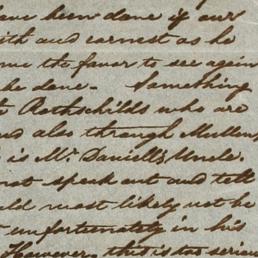 have been done if our
ith and earnest as he
me the favor to see again
be done. Something
Rothschilds who are
and also through Mullen
is Mr. Daniell's Uncle.
not speak out and tell
ld most likely not be
unfortunately in his
However, this is too serious